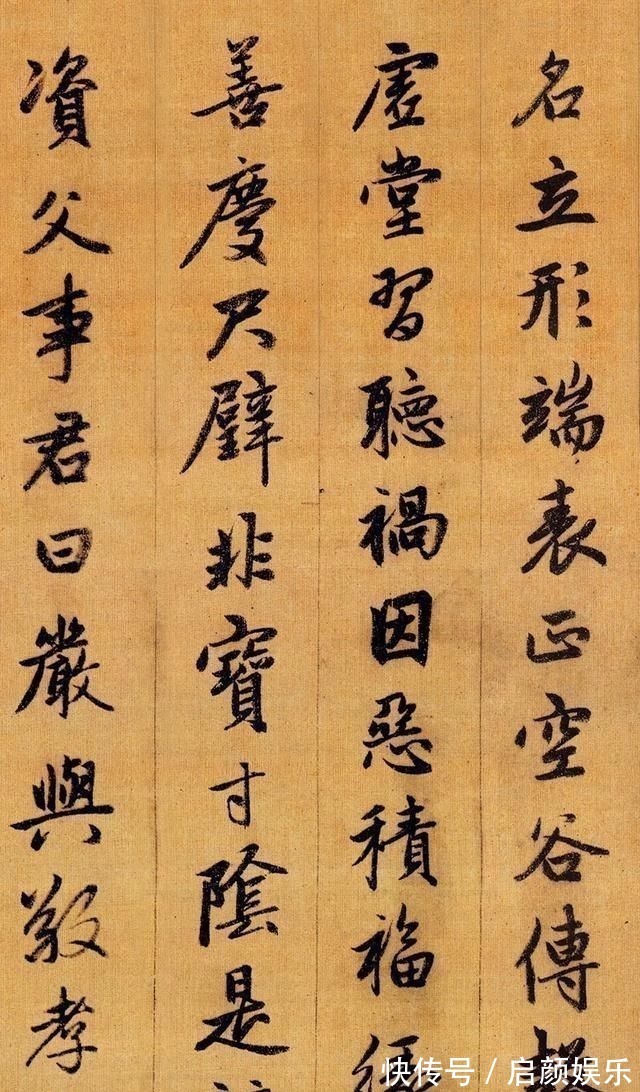 名立形端表正空谷傳
虛堂習聽禍因惡積福
善慶尺璧非寶寸陰是
資父事君曰嚴與敬孝
快传号/启颜娱乐